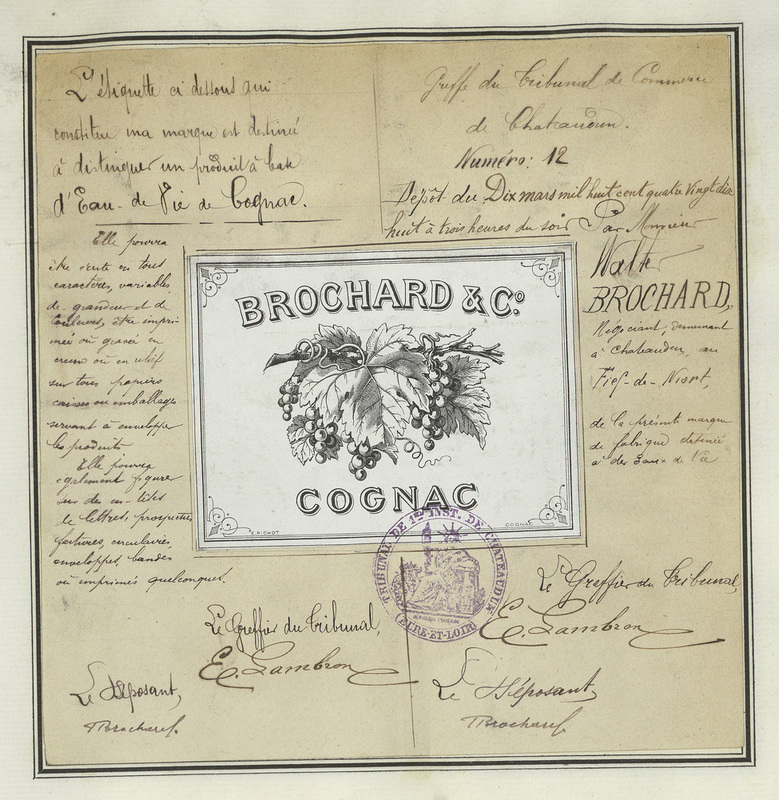 L'étiquette ci dessous qui
constitue ma marque est destinée
à distinguer un produit à base
d'Eau-de Vie de Cognac.
Elle pourra
être vente en tous
caractères, variables
de grandeur et de
couleurs, être impri
mée où gravée en
creux où en relief
sur tous papiers
caisses ou emballages
servant à envelopper
les produits
Elle pourra
également figurer
sur des en-têtes
de lettres, prospectus
factures, circulaires,
enveloppes, bandes
où imprimés quelconques.
Le Greffier du Tribunal,
E. Lambron
Le Déposant,
Brochard
Greffe du Tribunal de Commerce
de Chateaudun.
Numéro: 12
Dépôt du Dix mars mil huit cent quatre vingt dix
huit à trois heures du soir Par Monsieur
BROCHARD,
Négociant, demeurant
à Chateaudun, au
Fief-de-Niort,
de la présente marque
de fabrique destinée
à des Eaux de Vie
BROCHARD & Cº
COGNAC
E. PICHOT
COGNAC
TRIBUNAL DE 1ère INST. DE CHATEAUDUN
(EURE-ET-LOIR)
Le Greffier du Tribunal,
E. Lambron
Le Déposant,
Brochard